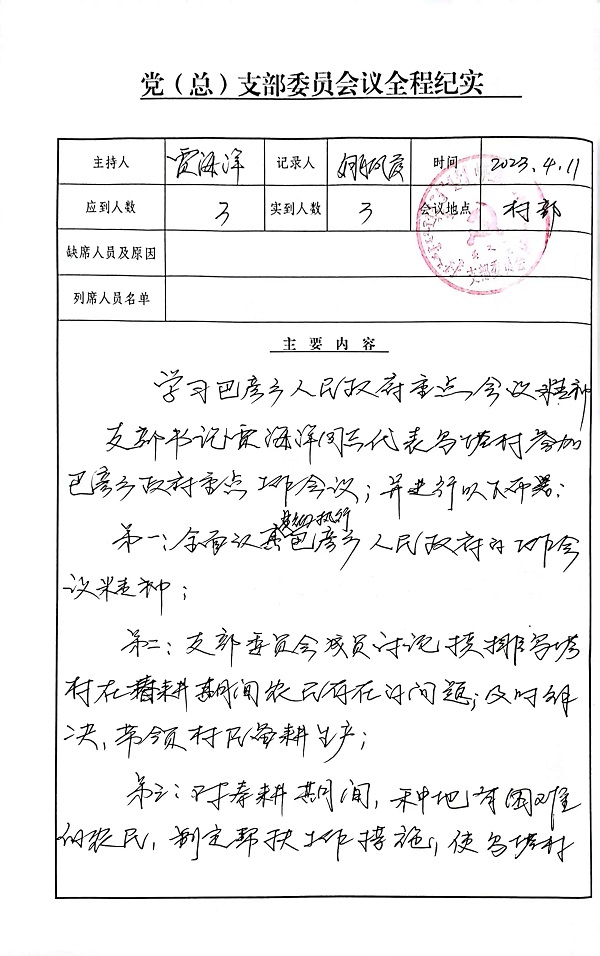 党（总）支部委员会议全程纪实
主持人 贾海洋 记录人 时间 2023.4.11
应到人数 3 实到人数 3 会议地点 村部
缺席人员及原因
列席人员名单
支部委员会
主要内容
学习巴彦乡人民政府重点会议精神
支部书记贾海洋同志代表乌塔村参加
巴彦乡政府重点工作会议；并进行以下布署：
贯彻执行
第一：全面认真巴彦乡人民政府的工作会
议精神；
第二：支部委员会成员讨论摸排乌塔
村在春耕期间农民存在的问题；及时解
决，带领村民备耕生产；
第三：对春耕期间，种地有困难
的农民，制定帮扶工作措施，使乌塔村